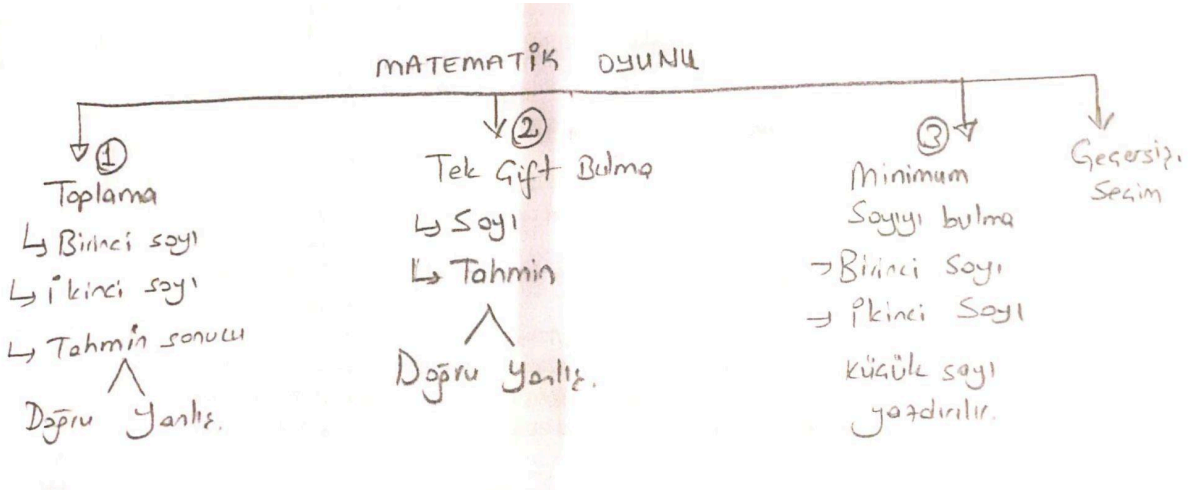 MATEMATİK OYUNU
①
Toplama
↳ Birinci sayı
↳ İkinci sayı
↳ Tahmin sonucu
Doğru Yanlış.
②
Tek Çift Bulma
↳ Sayı
↳ Tahmin
Doğru Yanlış.
③
Minimum
Sayıyı bulma
→ Birinci Sayı
→ İkinci Sayı
Küçük sayı
yazdırılır.
Geçersiz.
Seçim